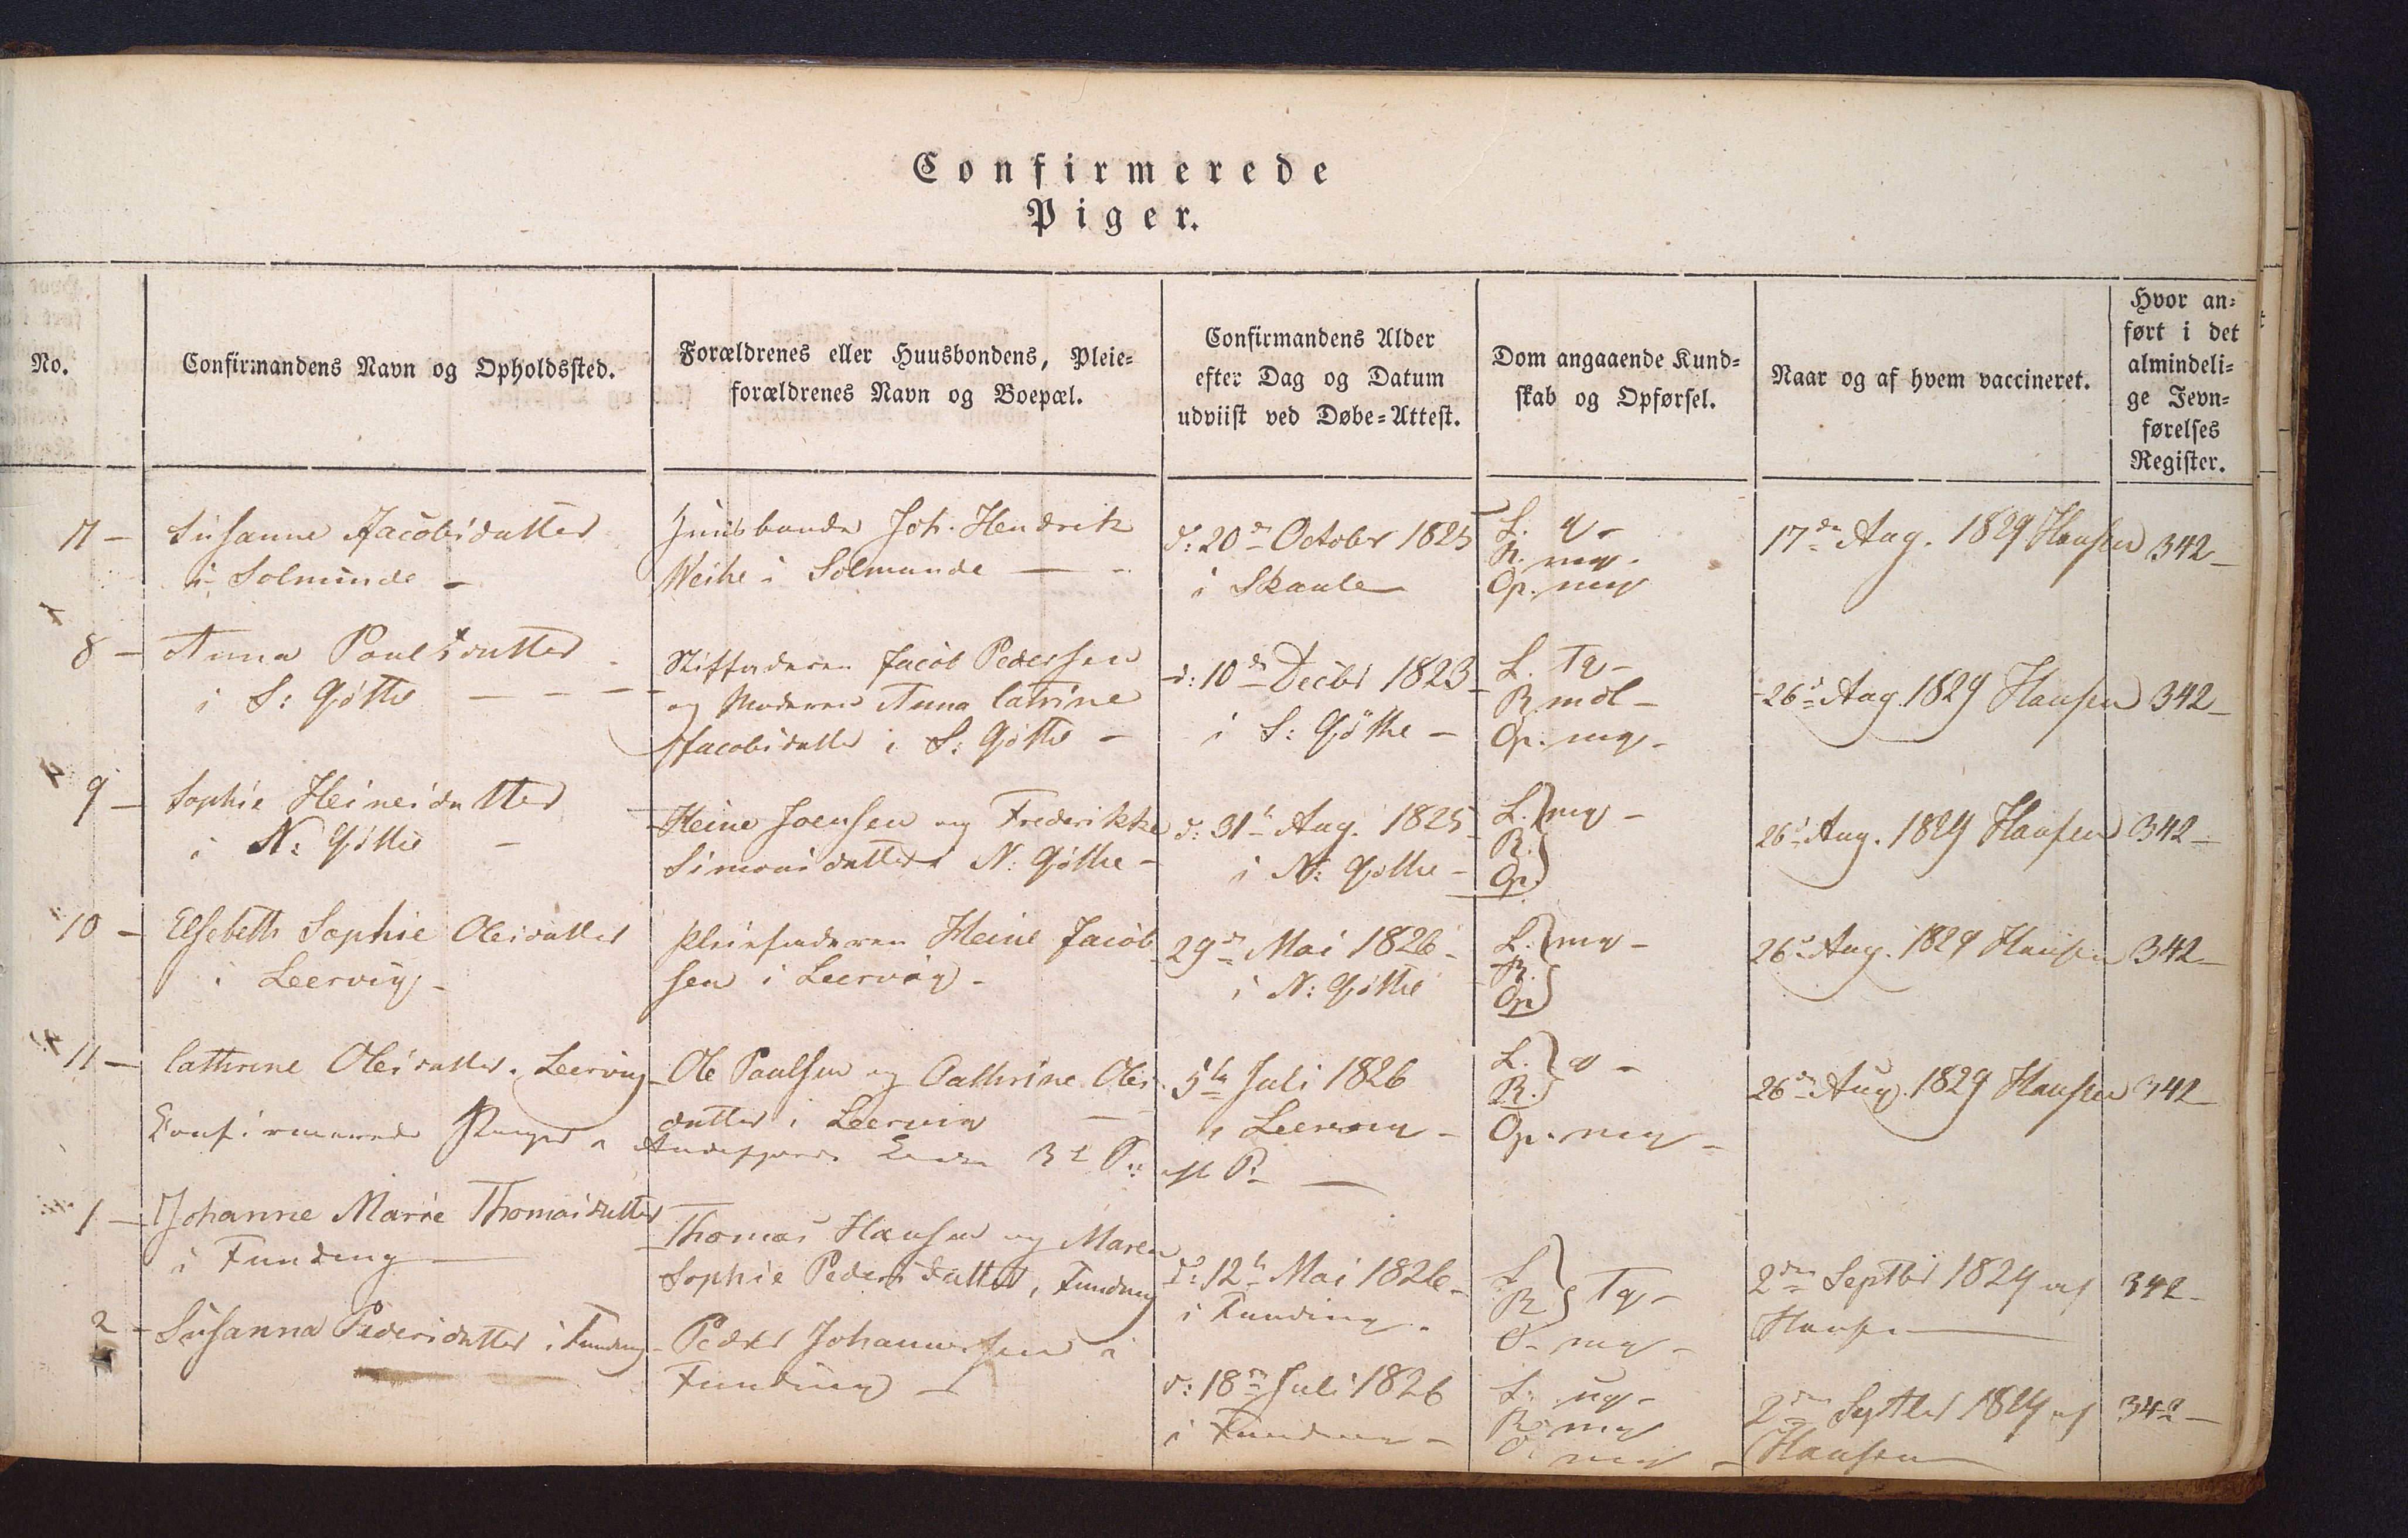 Confirmerede
Piger.
No.
Confirmandens Navn og Opholdssted.
Forældrenes eller Huusbondens, Pleie=
forældrenes Navn og Boepæl.
Confirmandens Alder
efter Dag og Datum
udviist ved Døbe=Attest.
Dom angaaende Kund=
skab og Opførsel.
Naar og af hvem vaccineret.
Hvor an=
ført i det
almindeli=
ge Jevn=
førelses
Register.
7 –
Susanne Jacobsdatter
i Solmunde –
Huusbonde Joh. Hendrik
Weihe i Solmunde –
d: 20de October 1825
i Skaale
L. g –
R. mg.
Op. mg
17de Aug. 1829 Hansen
342 –
8 –
Anna Poulsdatter
i S: Gøthe – – –
Stiffaderen Jacob Pedersen
og Moderen Anna Catrine
Jacobsdatter i S: Gøthe –
d: 10de Decbr 1823
i S: Gøthe –
L. Tg –
R mdl –
Op. mg –
26d Aug. 1829 Hansen
342 –
9 –
Sophie Heinesdatter
i N: Gøthe –
Heine Joensen og Frederikke
Simonsdatter i N: Gøthe –
d: 31te Aug. 1825
i N: Gøthe –
L. } mg –
R.
Op.
26d Aug. 1829 Hansen
342 –
10 –
Elsebeth Sophie Olesdatter
i Leervig –
Pleiefaderen Heine Jacob
sen i Leervig –
29de Mai 1826 –
i N: Gøthe
L. } mg –
R.
Op
26d Aug. 1829 Hansen
342 –
11 –
Cathrine Olesdatter i Leervig
Ole Poulsen og Cathrine Oles
datter i Leervig –
5te Juli 1826
i Leervig –
L. } g –
R.
Op. mg –
26de Aug. 1829 Hansen
342 –
Confirmerede Piger i
1 –
Johanne Marie Thomasdatter
i Funding
Thomas Hansen og Maren
Sophie Pedersdatter i Funding
d: 12te Mai 1826 –
i Funding –
L } Tg –
R
O. mg –
2den Septbr 1829 af
Hansen
342 –
2 –
Susanna Pedersdatter i Funding
Peder Johannessen i
Funding –
d: 18de Juli 1826
i Funding –
L. ug –
R mg
O. mg –
2den Septbr 1829 af
Hansen
342 –